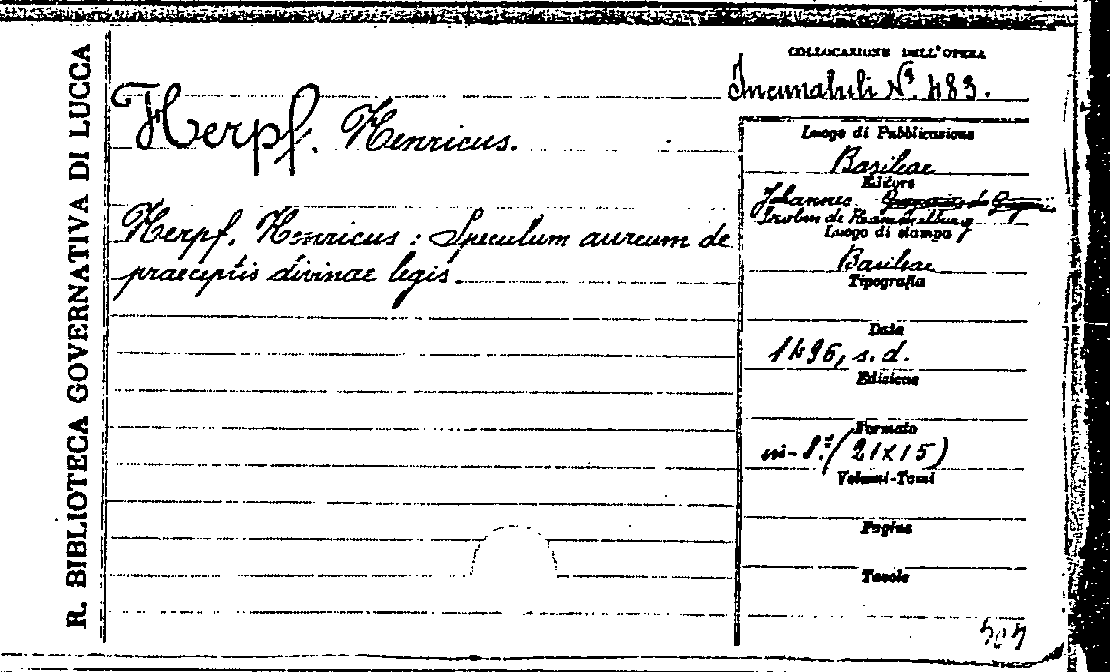 R. BIBLIOTECA GOVERNATIVA DI LUCCA
Herpf. Henricus.
Herpf. Henricus : Speculum aureum de
praeceptis divinae legis.
COLLOCAZIONE DELL'OPERA
Incunabuli N.º 483.
Luogo di Pubblicazione
Basileae
Editore
Johannes
Froben de Hammelburg
Luogo di stampa
Basileae
Tipografia
Data
1496, s. d.
Edizione
Formato
in-8.º (21x15)
Volumi-Tomi
Pagine
Tavole